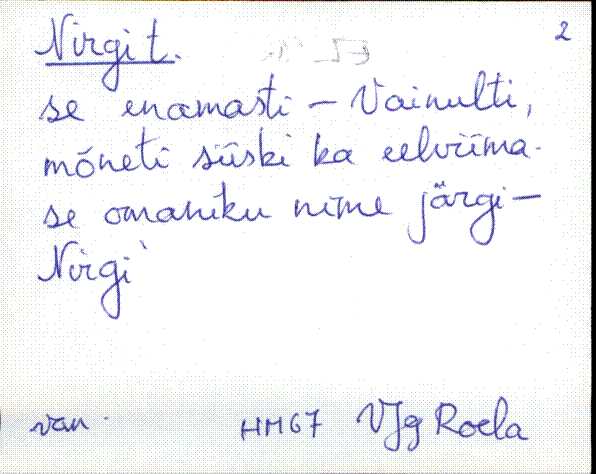 Nirgi t. 2
se enamasti – Vainulti,
mõneti siiski ka eelviima-
se omaniku nime järgi –
Nirgi`
van. HM67 VJg Roela